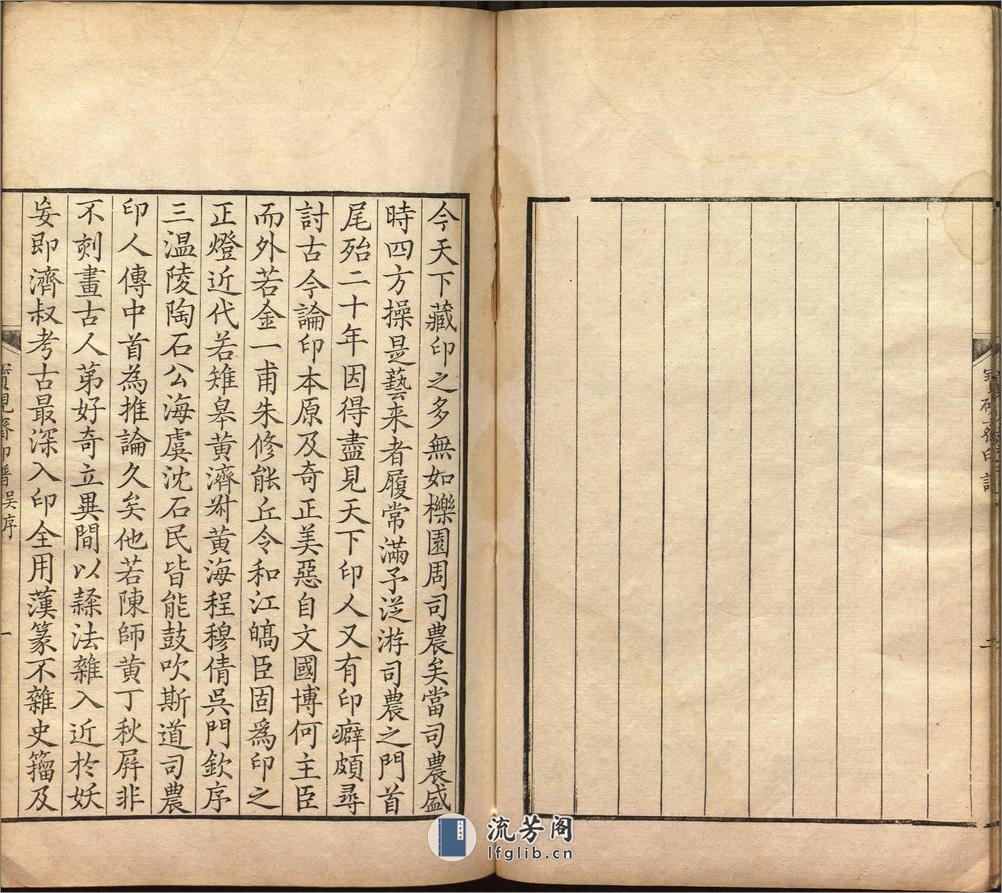 寶硯齋印譜
二
今天下藏印之多無如櫟園周司農矣當司農盛
時四方操是藝来者履常滿予従游司農之門首
尾殆二十年因得盡見天下印人又有印癖頗尋
討古今論印本原及奇正美惡自文國博何主臣
而外若金一甫朱修能丘令和江皜臣固爲印之
正燈近代若雉皋黄濟叔黄海程穆倩吳門欽序
三温陵陶石公海虞沈石民皆能鼓吹斯道司農
印人傳中首為推論久矣他若陳師黄丁秋屏非
不刻畫古人苐好奇立異間以𨽻法雜入近扵妖
妄即濟叔考古最深入印全用漢篆不雜史籀及
寶硯齋印譜吴序
一
流芳阁
lfglib.cn